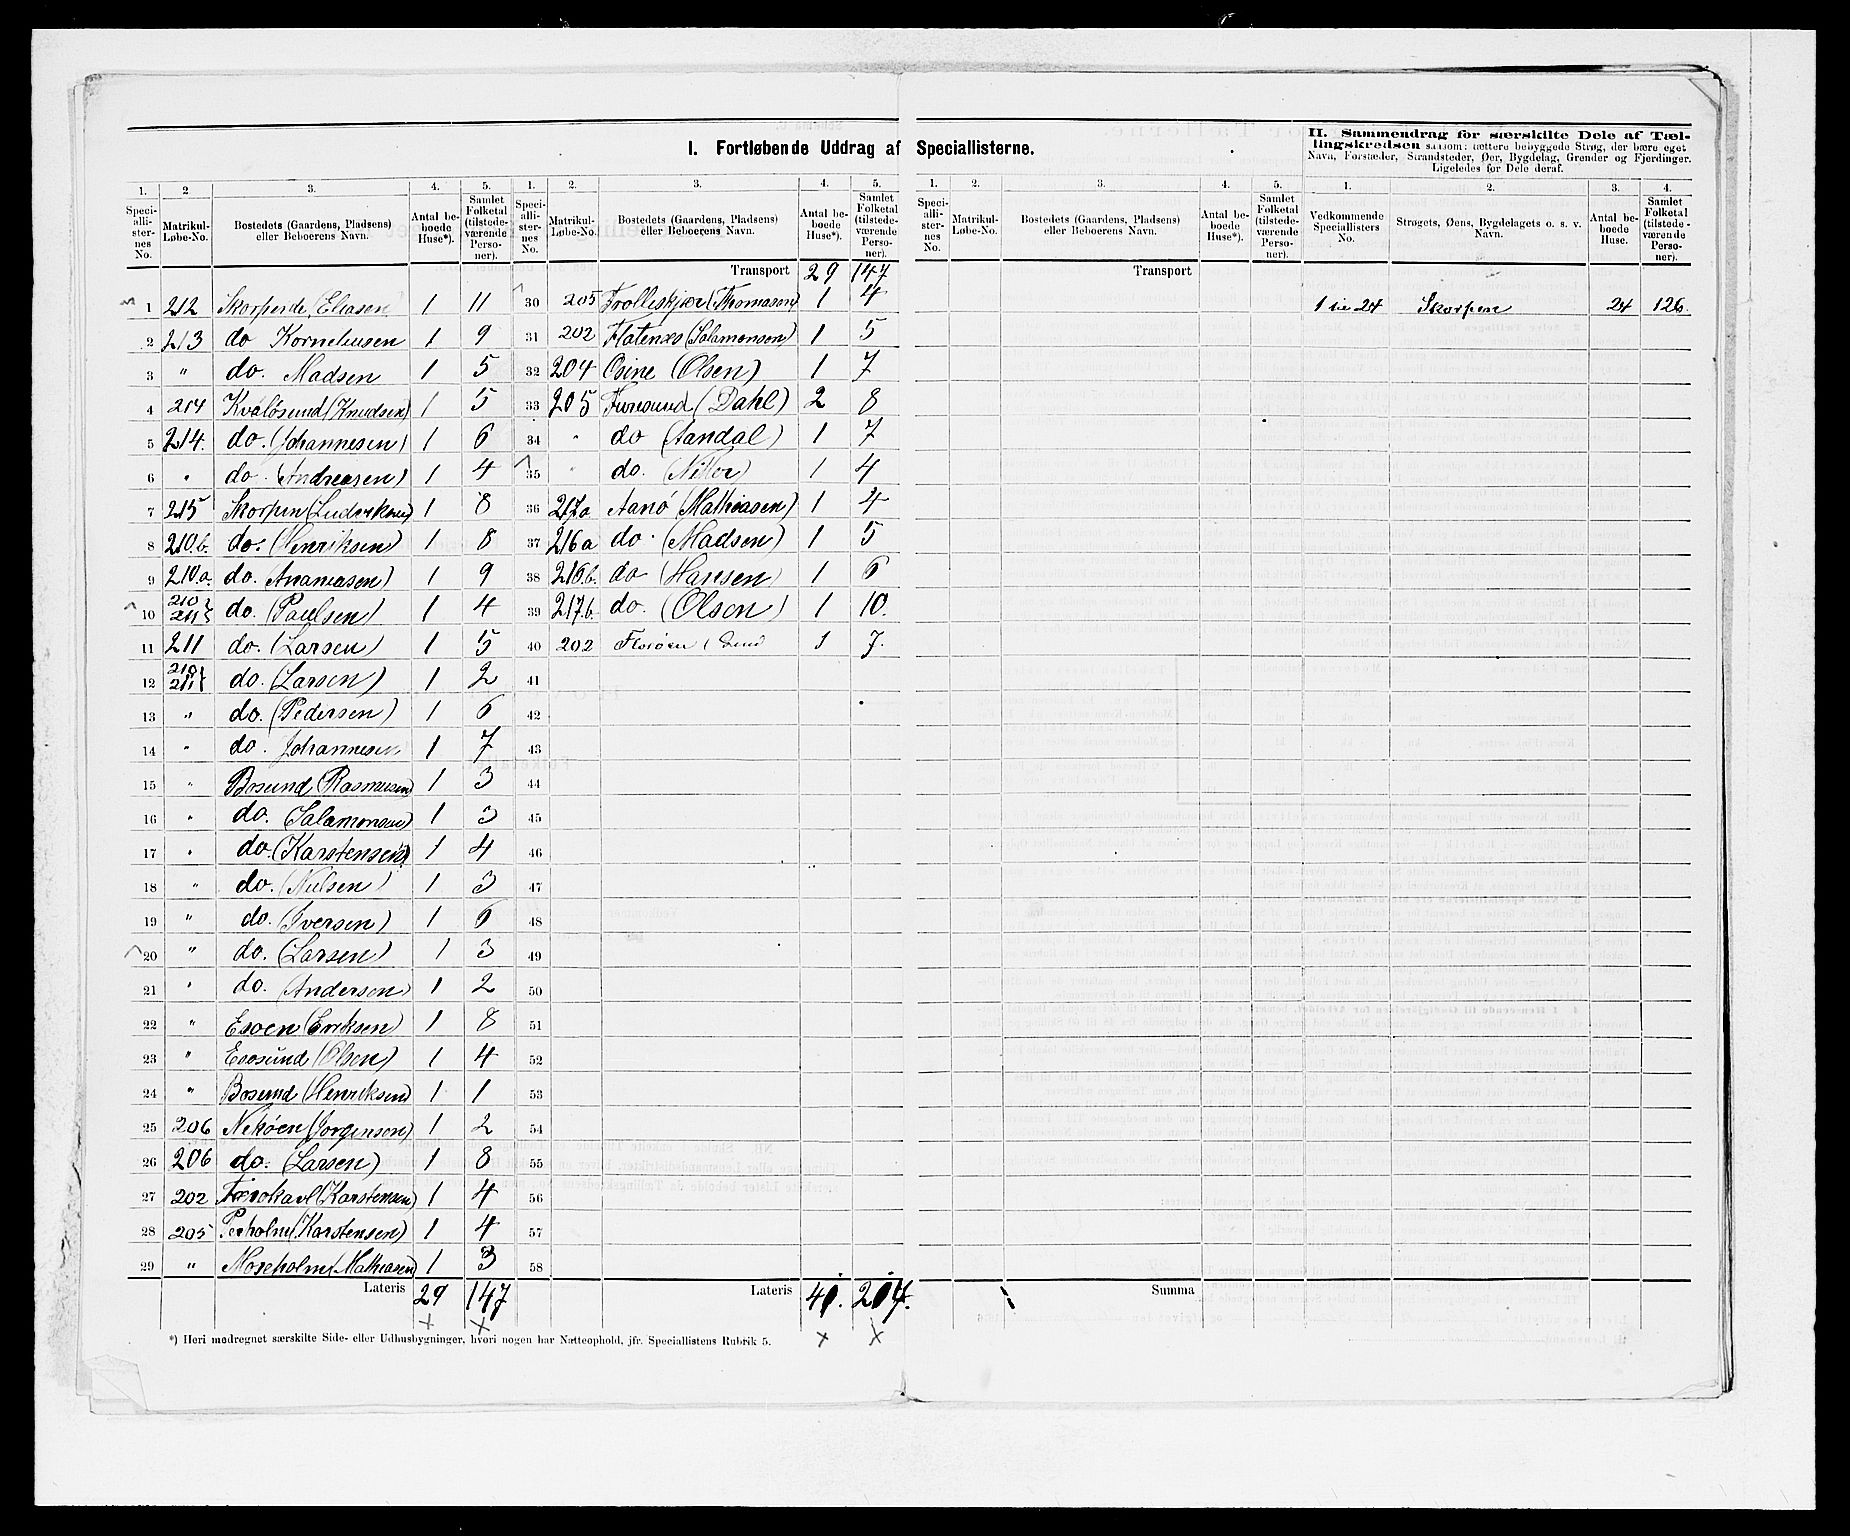 I. Fortløbende Uddrag af Speciallisterne.
II. Sammendrag for særskilte Dele af Tæl-
lingskredsen saasom: tættere bebyggede Strøg, der bære eget
Navn, Forstæder, Strandsteder, Øer, Bygdelag, Grender og Fjerdinger.
Ligeledes for Dele deraf.
1. 2 3. 4. 5. 1. 2. 3. 4. 5. 1. 2. 3. 4. 5. 1. 2. 3. 4.
Speci-alli-ster-nes No. Matrikul-Løbe-No. Bostedets (Gaardens, Pladsens) eller Beboerens Navn. Antal be-boede Huse*). Samlet Folketal (tilstede-værende Perso-ner).
Speci-alli-ster-nes No. Matrikul-Løbe-No. Bostedets (Gaardens, Pladsens) eller Beboerens Navn. Antal be-boede Huse*). Samlet Folketal (tilstede-værende Perso-ner).
Speci-alli-ster-nes No. Matrikul-Løbe-No. Bostedets (Gaardens, Pladsens) eller Beboerens Navn. Antal be-boede Huse*). Samlet Folketal (tilstede-værende Perso-ner).
Vedkommende Speciallisters No. Strøgets, Øens, Bygdelagets o. s. v. Navn. Antal be-boede Huse. Samlet Folketal (tilstede-værende Perso-ner).
1 212 (Eliasen) 1 11
2 213 do Korneliusen 1 9
3 " do. Madsen 1 5
4 214 Kvaløsund (Knudsen) 1 5
5 214. do. (Johannesen) 1 6
6 " do. (Andreasen) 1 4
7 215 Skorpen (Ludviksen) 1 8
8 210.b. do. (Henriksen) 1 8
9 210.a. do. Ananiasen) 1 9
10 210 211 } do. (Paulsen) 1 4
11 211 do. (Larsen) 1 5
12 210 211 } do. (Larsen) 1 2
13 " do. (Pedersen) 1 6
14 " do. Johannesen 1 7
15 " Bosund (Rasmusen) 1 3
16 " do. (Salamonsen) 1 3
17 " do. (Karstensen) 1 4
18 " do. (Nilsen) 1 3
19 " do. (Iversen) 1 6
20 " do. (Larsen) 1 3
21 " do. (Andersen) 1 2
22 " Esøen (Eriksen) 1 8
23 " Essund (Olsen) 1 4
24 " Bosund (Henriksen) 1 1
25 206 Nekøen (Jørgensen) 1 2
26 206 do. (Larsen) 1 8
27 202 (Karstensen) 1 4
28 205 Perholm (Karstensen) 1 4
29 " Moseholm (Mathiasen) 1 3
Lateris 29 147
Transport 29 147
30 205 Trolleskjær (Thomasen) 1 4
31 202 Flatenæs (Salamonsen) 1 5
32 204 Osine (Olsen) 1 7
33 205 Furesund (Dahl) 2 8
34 " do (Aandal) 1 7
35 " do. 1 4
36 217a Aanø (Mathiasen) 1 4
37 216a do. (Madsen) 1 5
38 216.b. do (Hansen) 1 6
39 217.b. do. (Olsen) 1 10.
40 202 1 7.
41
42
43
44
45
46
47
48
49
50
51
52
53
54
55
56
57
58
Lateris 41. 214.
Transport
Summa
1 til 24 Skorpen 24 126.
*) Heri medregnet særskilte Side- eller Udhusbygninger, hvori nogen har Natteophold, jfr. Speciallistens Rubrik 5.